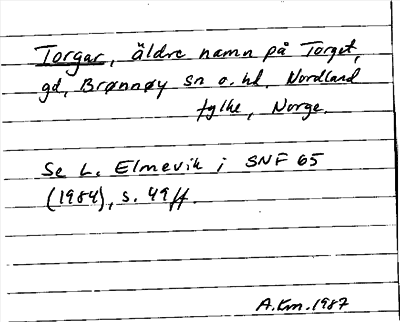 Torgar, äldre namn på Torget,
gd, Brønnøy sn o. hd. Nordland
fylke, Norge.
Se L. Elmevik i SNF 65
(1984), s. 49 ff.
A.Km. 1987